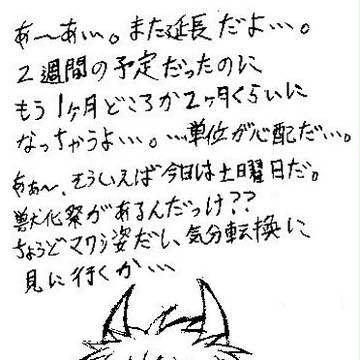 あ〜あぃぃ。また延長だよ…。
2週間の予定だったのに
もう1ヶ月どころか2ヶ月くらいに
なっちゃうよ…。…単位が心配だぃ…。
あぁ〜、そういえば今日は土曜日だ。
獣化祭があるんだっけ??
ちょうどマワシ姿だし、気分転換に
見に行くか…